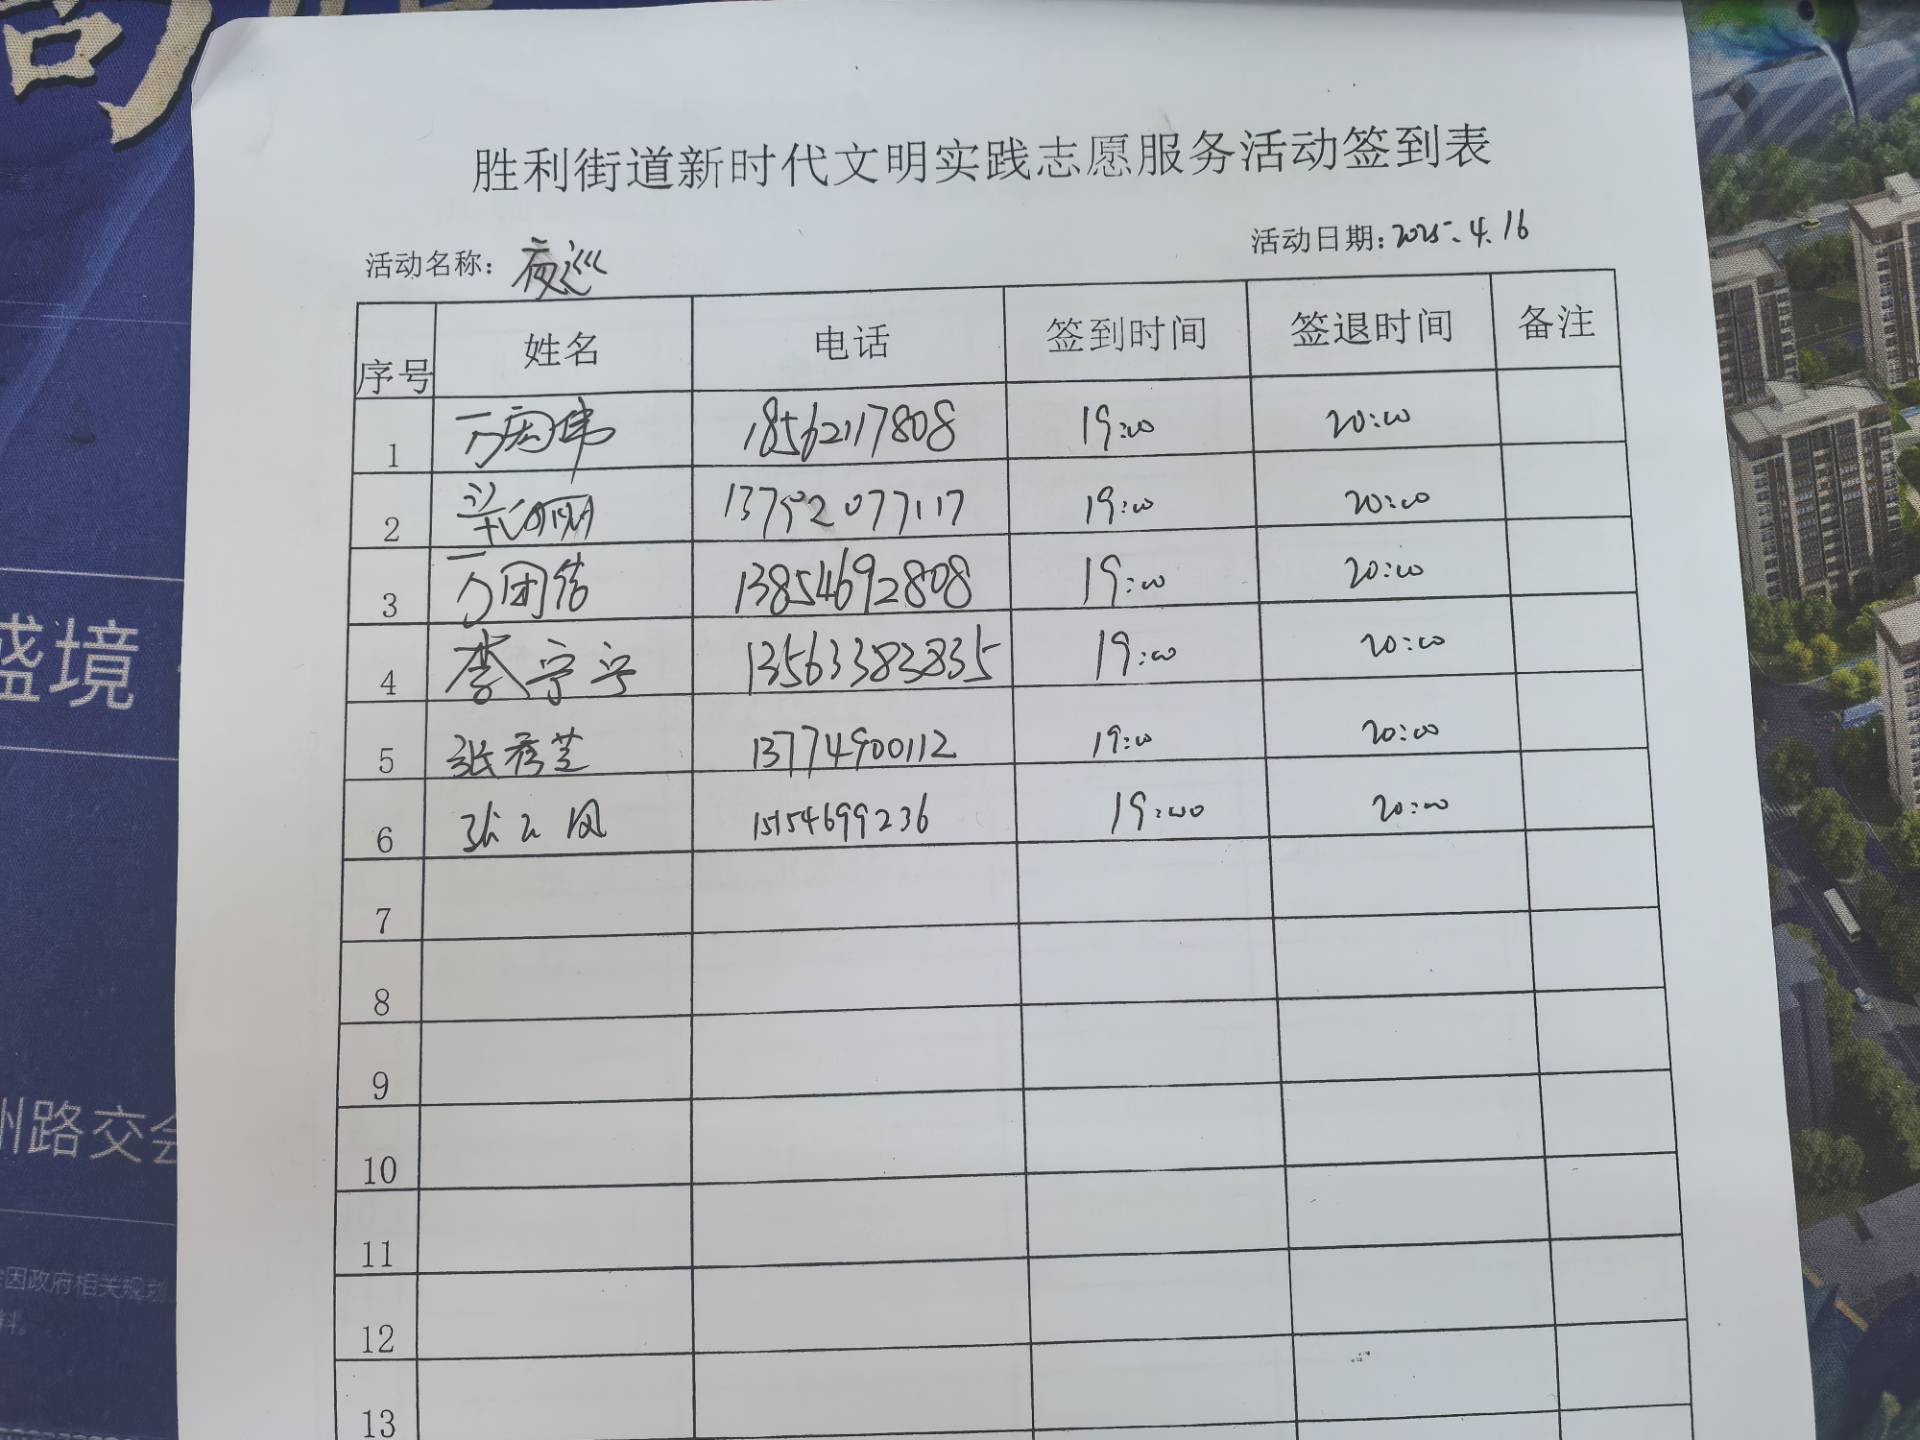 胜利街道新时代文明实践志愿服务活动签到表
活动名称：夜巡 活动日期：2025.4.16
序号 姓名 电话 签到时间 签退时间 备注
1 万宏伟 18562117808 19:00 20:00
2 13792077117 19:00 20:00
3 万团结 13854692808 19:00 20:00
4 李宁宁 13563383835 19:00 20:00
5 张秀芝 13774900112 19:00 20:00
6 张云凤 15154699236 19:00 20:00
7
8
9
10
11
12
13
盛境
州路交会
因政府相关规划